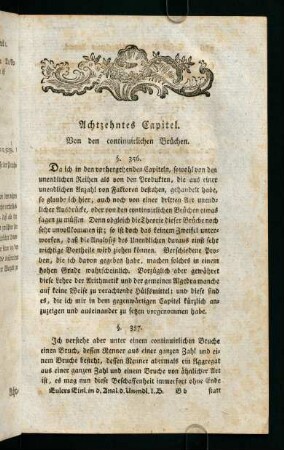 Achtzehntes Capitel.
Von den continuirlichen Brüchen.
§. 356.
Da ich in den vorhergehenden Capiteln, sowohl von den
unendlichen Reihen als von den Produkten, die aus einer
unendlichen Anzahl von Faktoren bestehen, gehandelt habe,
so glaube ich hier, auch noch von einer dritten Art unend-
licher Ausdrücke, oder von den continuirlichen Brüchen etwas
sagen zu müssen. Denn obgleich die Theorie dieser Brüche noch
sehr unvollkommen ist; so ist doch das keinem Zweifel unter-
worfen, daß die Analysis des Unendlichen daraus einst sehr
wichtige Vortheile wird ziehen können. Verschiedene Pro-
ben, die ich davon gegeben habe, machen solches in einem
hohen Grade wahrscheinlich. Vorzüglich aber gewähret
diese Lehre der Arithmetik und der gemeinen Algebra manche
auf keine Weise zu verachtende Hülfsmittel; und diese sind
es, die ich mir in dem gegenwärtigen Capitel kürzlich an-
zuzeigen und auseinander zu setzen vorgenommen habe.
§. 357.
Ich verstehe aber unter einem continuirlichen Bruche
einen Bruch, dessen Nenner aus einer ganzen Zahl und ei-
nem Bruche besteht, dessen Nenner abermals ein Aggregat
aus einer ganzen Zahl und einem Bruche von ähnlicher Art
ist, es mag nun diese Beschaffenheit immerfort ohne Ende
Eulers Einl. in d. Anal. d. Unendl. I. B. statt